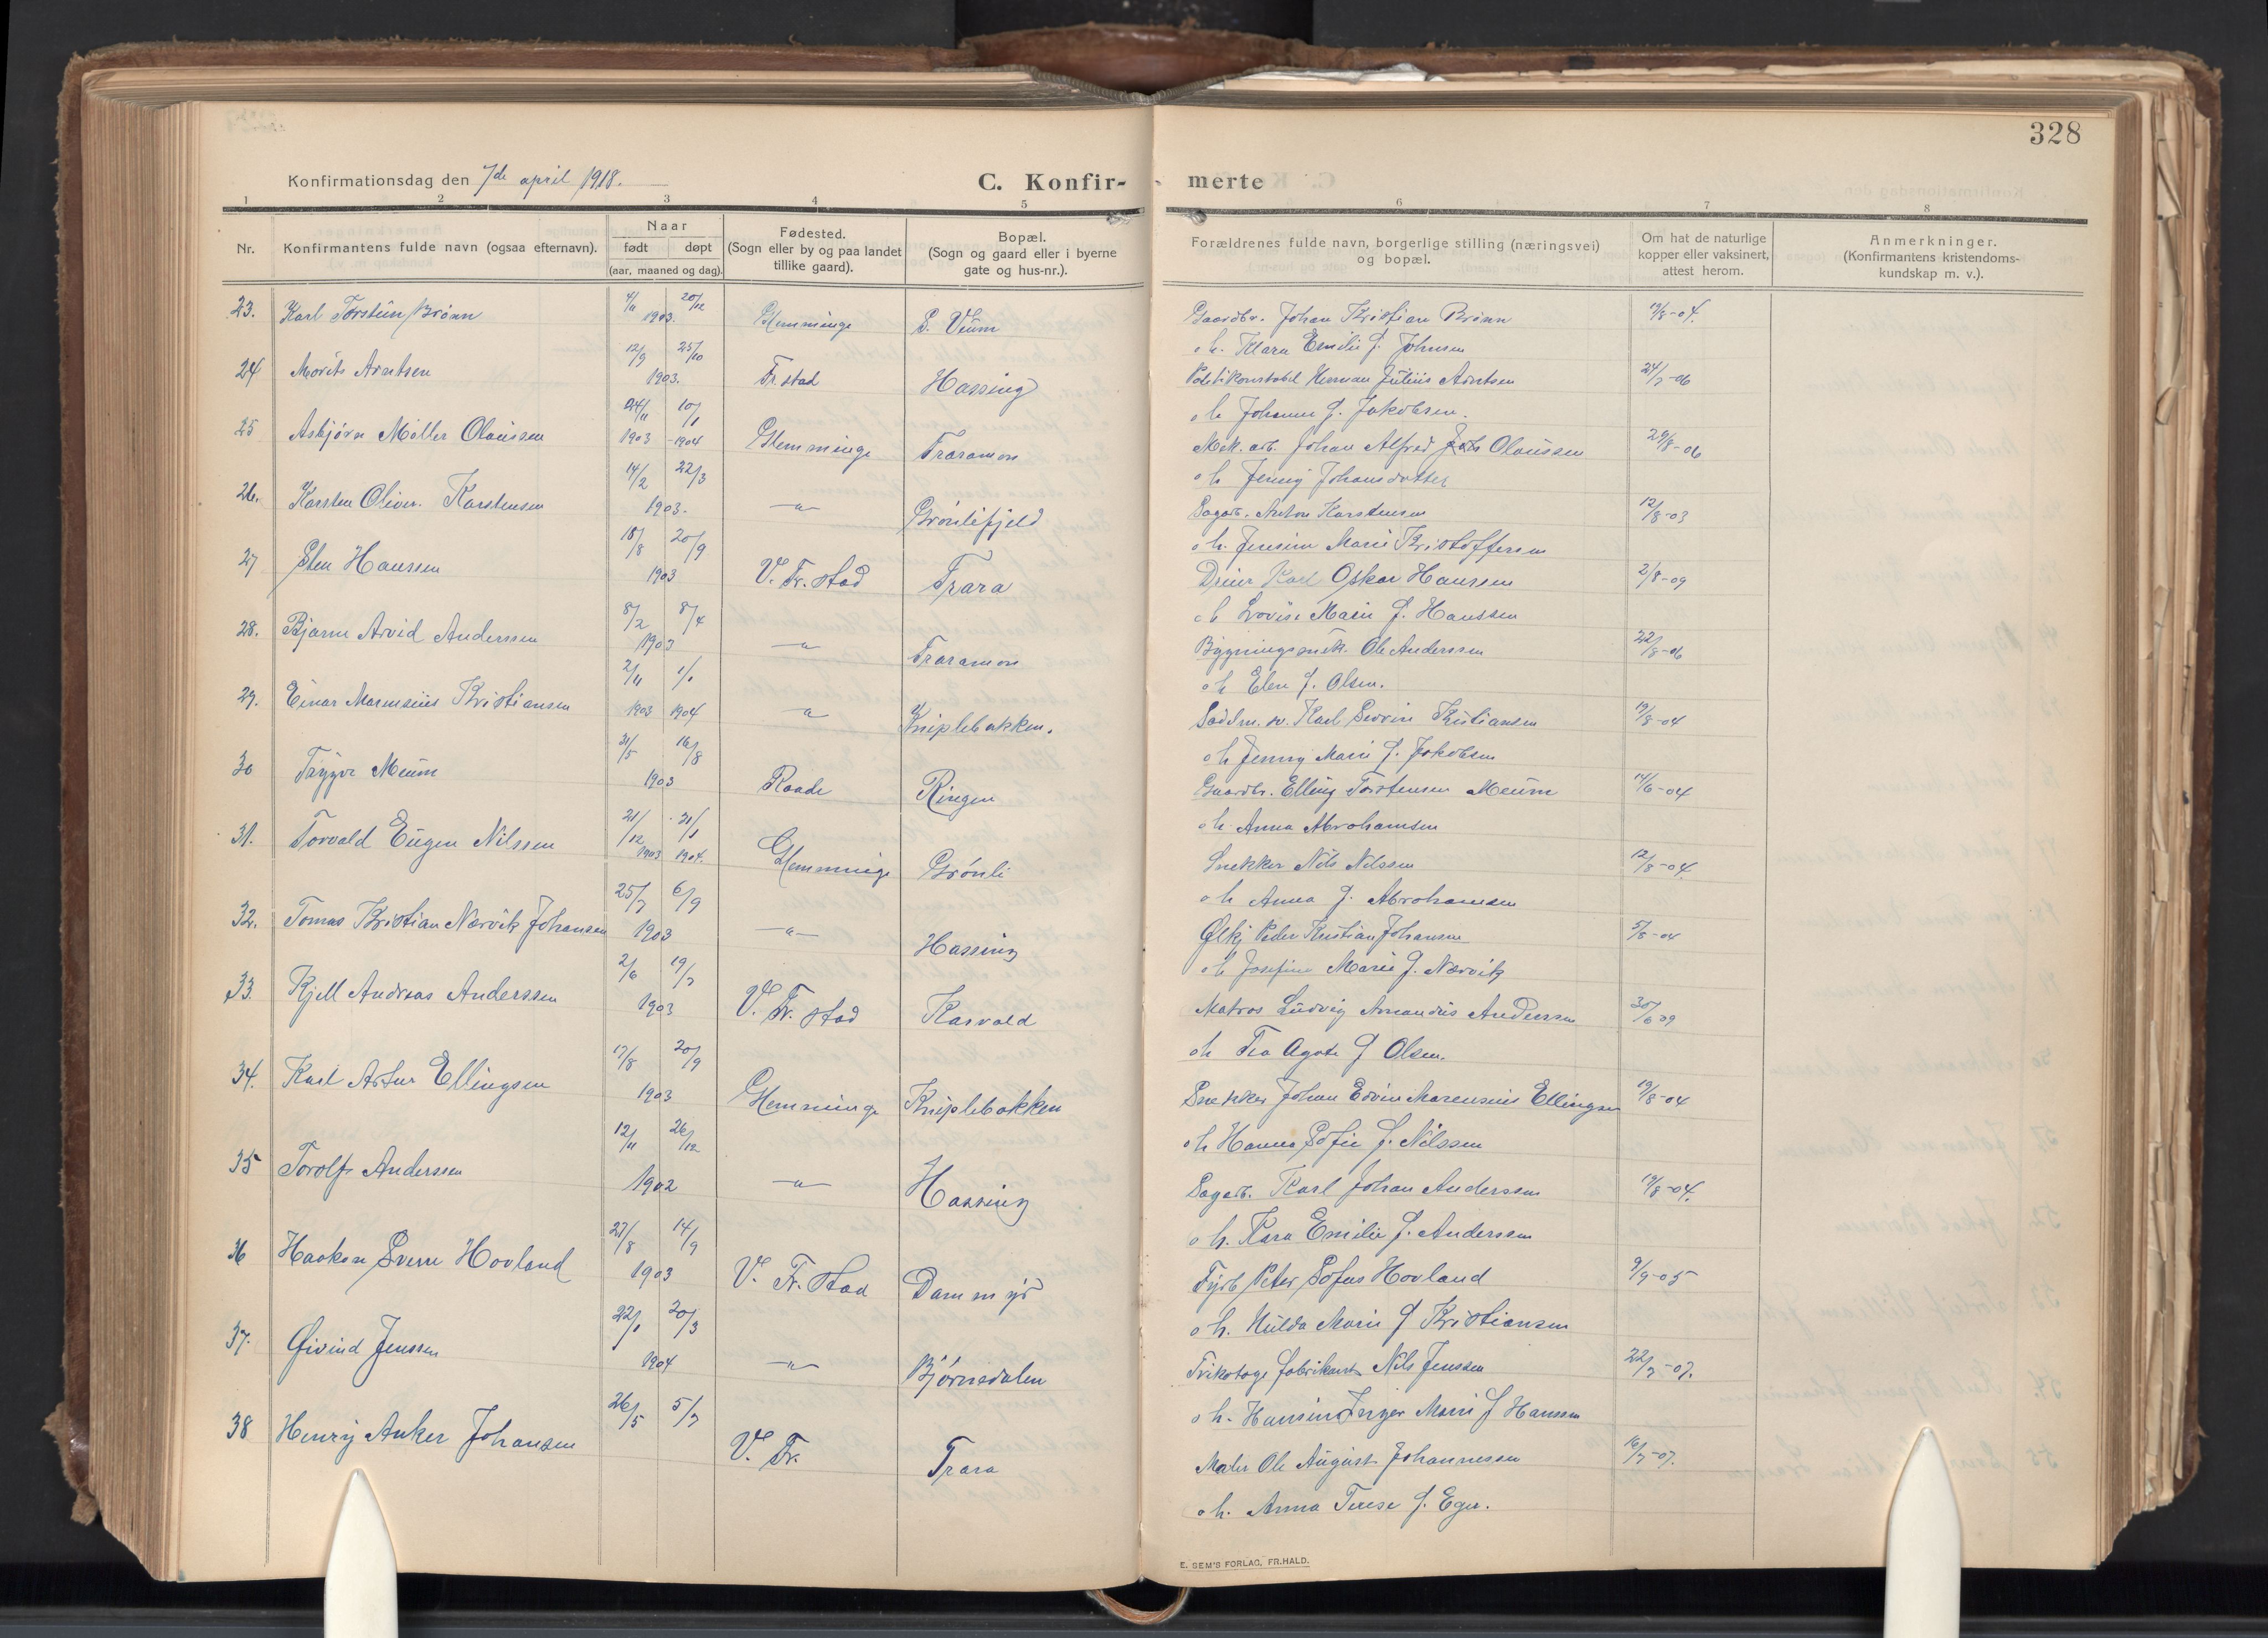 328
Konfirmationsdag den 7de april 1918.
C. Konfir-
merte
1 2 3 4 5 6 7 8
Nr.
Konfirmantens fulde navn (ogsaa efternavn).
Naar
født døpt
(aar, maaned og dag).
Fødested.
(Sogn eller by og paa landet
tillike gaard).
Bopæl.
(Sogn og gaard eller i byerne
gate og hus-nr.).
Forældrenes fulde navn, borgerlige stilling (næringsvei)
og bopæl.
Om hat de naturlige
kopper eller vaksinert,
attest herom.
Anmerkninger.
(Konfirmantens kristendoms-
kundskap m. v.).
23. Karl Torstein Brönn 4/11 20/12 1903. Glemminge S. Veum Gaardbr. Johan Kristian Brönn 19/8-04.
o h. Klara Emilie f. Johnsen
24 Morits Arntsen 12/9 25/10 1903. Fr stad Hassing Politikonstabel Herman Julius Arntsen 24/7-06
o h Johanne f. Jakobsen.
25 Asbjörn Möller Olaussen 24/11 1903 10/1 -1904 Glemminge Traramon Mek. arb. Johan Alfred Olaussen 29/8-06
o h Jenny Johansdatter
26. Karsten Oliver Karstensen 14/2 22/3 1903. -"- Grönlifjeld Sagarb. Anton Karstensen 12/8-03
o h. Jensine Marie Kristoffersen
27 Sten Hanssen 18/8 20/9 1903 V. Fr. stad Trara Dreier Karl Oskar Hanssen 2/8-09
o h Lovise Marie f. Hanssen
28. Bjarne Arvid Anderssen 8/2 8/4 1903 -"- Traramon Bygningssnek. Ole Anderssen 22/8-06
o h Elen f. Olsen.
29. Einar Marensius Kristiansen 2/11 1903 1/1 1904 -"- Kniplebakken. Sadelm. sv. Karl Severin Kristiansen 19/8-04
o h Jenny Marie f. Jakobsen
30 Trygve Meum 31/5 16/8 1903 Raade Ringen Gaardbr. Elling Torstensen Meum 14/6-04
o h. Anna Abrahamsen
31. Torvald Eugen Nilssen 21/12 1903 31/1 1904. Glemminge Grönli Snekker Nils Nilssen 12/8-04.
o h Anna f. Abrahamsen
32. Tomas Kristian Nærvik Johansen 25/7 6/9 1903 -"- Hassing Ølkj Peder Kristian Johansen 5/8-04
o h Josefine Marie f. Nærvik
33. Kjell Andreas Anderssen 2/6 19/7 1903 V. Fr. stad Karvald Matros Ludvig Amandus Anderssen 30/6 09
o h Tea Agate f Olsen.
34. Karl Artur Ellingsen 17/8 20/9 1903 Glemminge Kniplebakken Snekker Johan Edvin Marensius Ellingsen 19/8-04
o h Hanna Sofie f. Nilssen
35 Torolf Anderssen 12/11 26/12 1902 -"- Hassing Sagarb. Karl Johan Anderssen 19/8-04.
o h. Kara Emilie f. Anderssen
36 Haakon Sverre Hovland 27/8 14/9 1903 V. Fr. stad Dammyr Fyrb Peter Sofus Hovland 9/9-05
o h. Hulda Marie f Kristiansen
37. Øivind Jenssen 22/1 20/3 1904 -"- Björnedalen Trikotage fabrikant Nils Jenssen 22/7-07.
o h. Hansine Inger Marie f Hanssen
38 Henry Anker Johansen 26/5 5/7 V. Fr. Trara Maler Ole August Johannessen 16/7-07.
o h. Anna Terese f. Eger.
E. SEM'S FORLAG, FR.HALD.